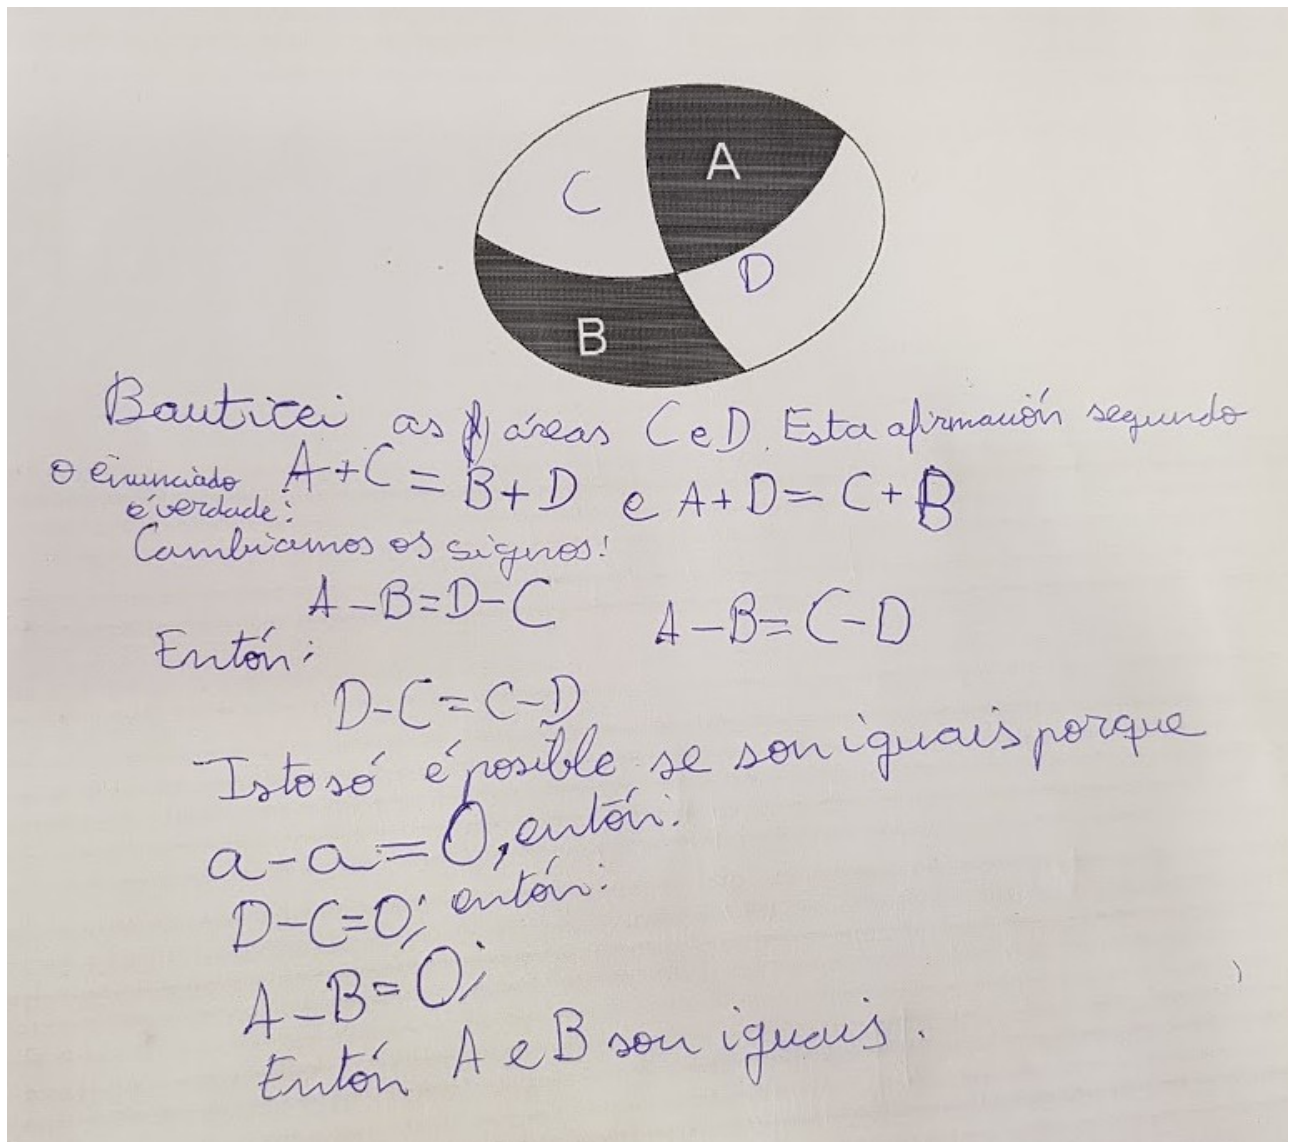 A
C
D
B
Bauticei as áreas C e D. Esta afirmación segundo
o enunciado A+C=B+D e A+D=C+B
é verdade:
Cambiamos os signos:
A-B=D-C A-B=C-D
Entón:
D-C=C-D
Isto só é posible se son iguais porque
a-a=0, entón:
D-C=0; entón:
A-B=0;
Entón A e B son iguais.